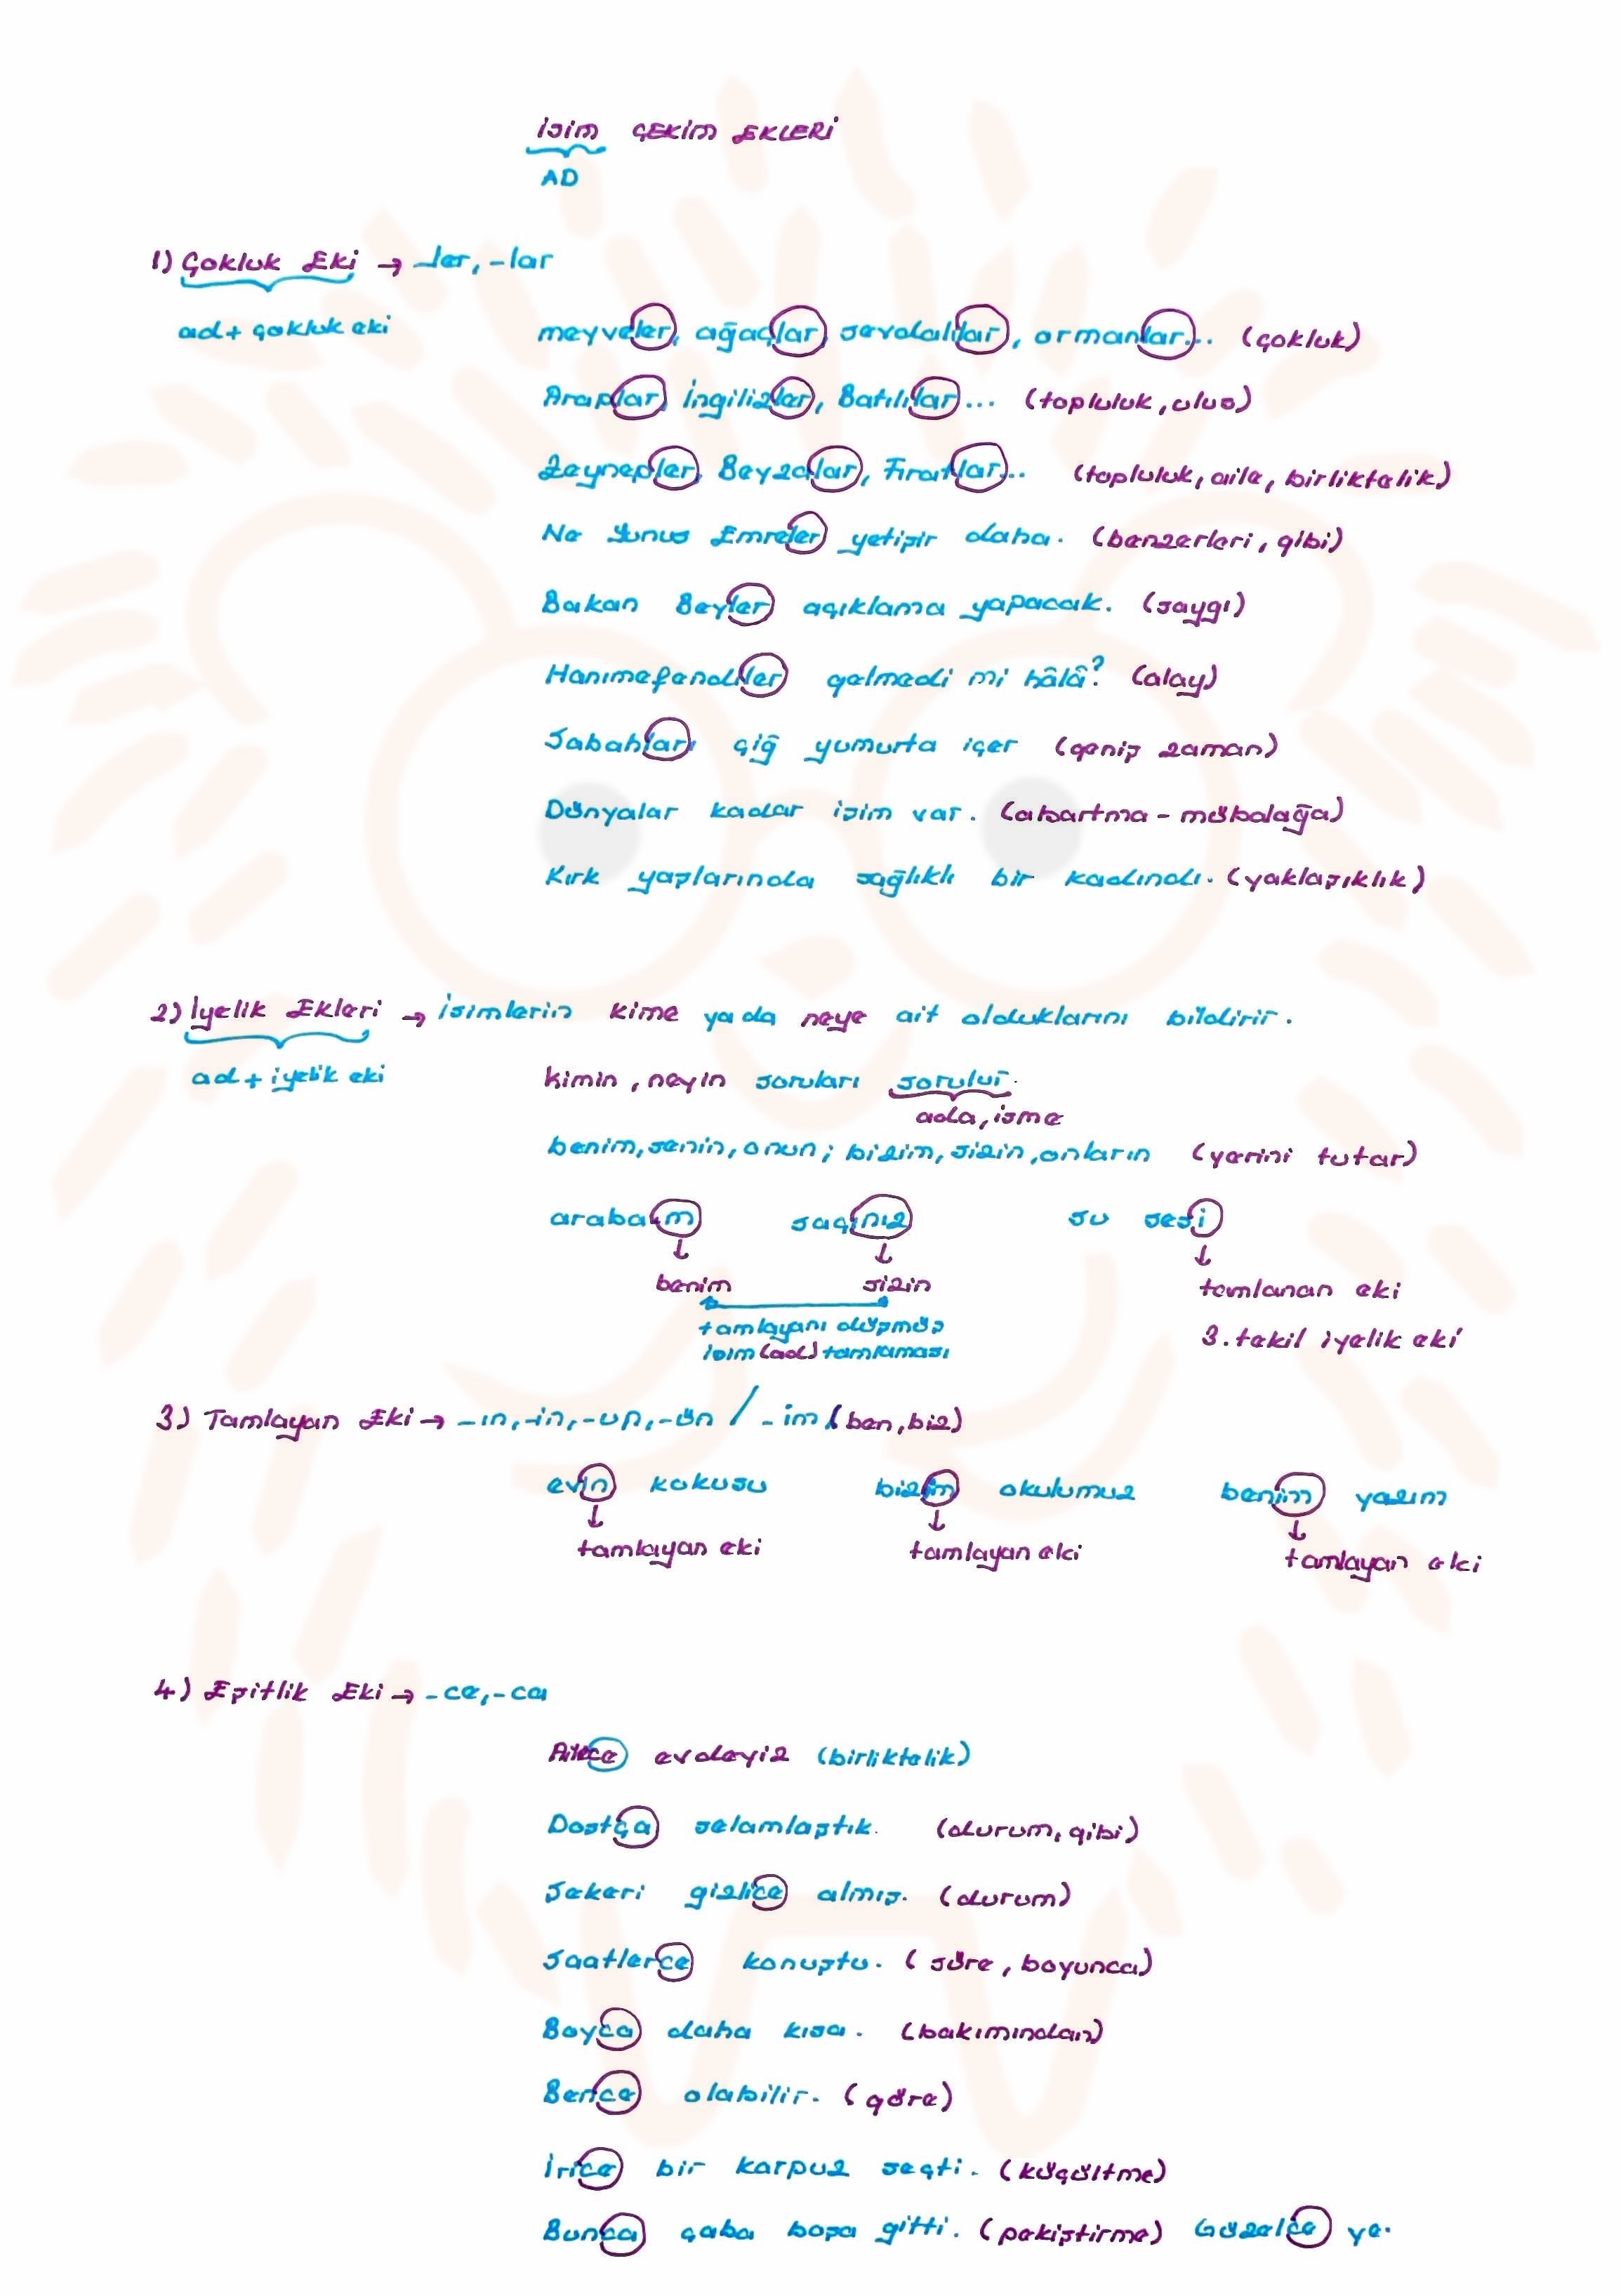 İSİM ÇEKİM EKLERİ
AD
1) Çokluk Eki → -ler, -lar
ad + çokluk eki
meyveler, ağaçlar, sevdalılar, ormanlar... (çokluk)
Araplar, İngilizler, Batılılar... (topluluk, ulus)
Zeynepler, Beyzalar, Fıratlar... (topluluk, aile, birliktelik)
Ne Yunus Emreler yetişir daha. (benzerleri, gibi)
Bakan Beyler açıklama yapacak. (saygı)
Hanımefendiler gelmedi mi hâlâ? (alay)
Sabahları çiğ yumurta içer (geniş zaman)
Dünyalar kadar işim var. (abartma - mübalağa)
Kırk yaşlarında sağlıklı bir kadındı. (yaklaşıklık)
2) İyelik Ekleri → İsimlerin kime ya da neye ait olduklarını bildirir.
ad + iyelik eki
kimin, neyin soruları sorulur.
ada, isme
benim, senin, onun; bizim, sizin, onların (yerini tutar)
arabam saçınız su sesi
benim sizin tamlanan eki
tamlayanı düşmüş 3. tekil iyelik eki
isim (ad) tamlaması
3) Tamlayan Eki → -ın, -in, -un, -ün / -im (ben, biz)
evin kokusu bizim okulumuz benim yazım
tamlayan eki tamlayan eki tamlayan eki
4) Eşitlik Eki → -ce, -ca
Ailece evdeyiz (birliktelik)
Dostça selamlaştık. (durum, gibi)
Şekeri gizlice almış. (durum)
Saatlerce konuştu. (süre, boyunca)
Boyca daha kısa. (bakımından)
Bence olabilir. (göre)
İrice bir karpuz seçti. (küçültme)
Bunca çaba boşa gitti. (pekiştirme) Güzelce ye.